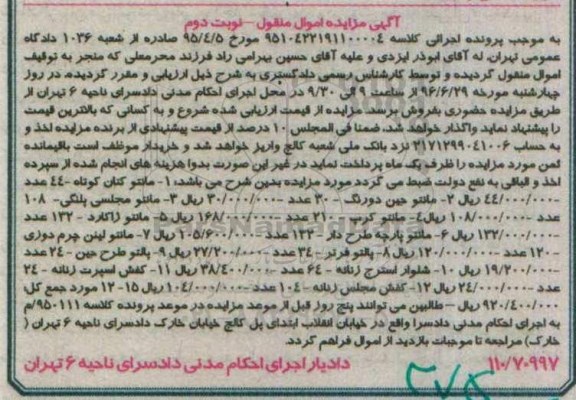 آگهی مزایده اموال منقول – نوبت دوم
به موجب پرونده اجرائی کلاسه 9510422191100004 مورخ 95/4/5 صادره از شعبه 1036 دادگاه
عمومی تهران، له آقای ابوذر ایزدی و علیه آقای حسین بهرامی راد فرزند محرمعلی که منجر به توقیف
اموال منقول گردیده و توسط کارشناس رسمی دادگستری به شرح ذیل ارزیابی و مقرر گردیده، در روز
چهارشنبه مورخه 96/6/29 از ساعت 9 الی 9/30 در محل اجرای احکام مدنی دادسرای ناحیه 6 تهران از
طریق مزایده حضوری بفروش برسد. مزایده از قیمت ارزیابی شده شروع و به کسانی که بالاترین قیمت
را پیشنهاد نماید واگذار خواهد شد، ضمنا فی المجلس 10 درصد از قیمت پیشنهادی از برنده مزایده اخذ و
به حساب 2171299041006 نزد بانک ملی شعبه کالج واریز خواهد شد و خریدار موظف است باقیمانده
ثمن مورد مزایده را ظرف یک ماه پرداخت نماید در غیر این صورت بدوا هزینه های انجام شده از سپرده
اخذ و الباقی به نفع دولت ضبط می گردد مورد مزایده بدین شرح می باشد: 1- مانتو کتان کوتاه -44 عدد
-44/000/000 ریال 2- مانتو جین دورنگ -30 عدد -30/000/000 ریال 3- مانتو مجلسی پلنگی- 108
عدد -108/000/000 ریال 4- مانتو کرپ -210 عدد -168/000/000 ریال 5- مانتو ژاکارد -132 عدد
-132/000/000 ریال 6- مانتو پارچه طرح دار -132 عدد -105/600/000 ریال 7- مانتو لینن چرم دوزی
-120 عدد -120/000/000 ریال 8- پالتو فرنر -34 عدد -27/200/000 ریال 9- پالتو طرح جین -24 عدد
-19/200/000 ریال 10- شلوار استرج زنانه -64 عدد -38/400/000 ریال 11- کفش اسپرت زنانه -24
عدد -24/000/000 ریال 12- کفش مجلسی زنانه -104 عدد -104/000/000 ریال 15-12 مورد جمع کل
920/400/000 ریال – طالبین می توانند پنج روز قبل از موعد مزایده در موعد پرونده کلاسه 950111/م
به اجرای احکام مدنی دادسرا واقع در خیابان انقلاب ابتدای پل کالج خیابان خارک دادسرای ناحیه 6 تهران (
خارک) مراجعه تا موجبات بازدید از اموال فراهم گردد.
110/70997 دادیار اجرای احکام مدنی دادسرای ناحیه 6 تهران